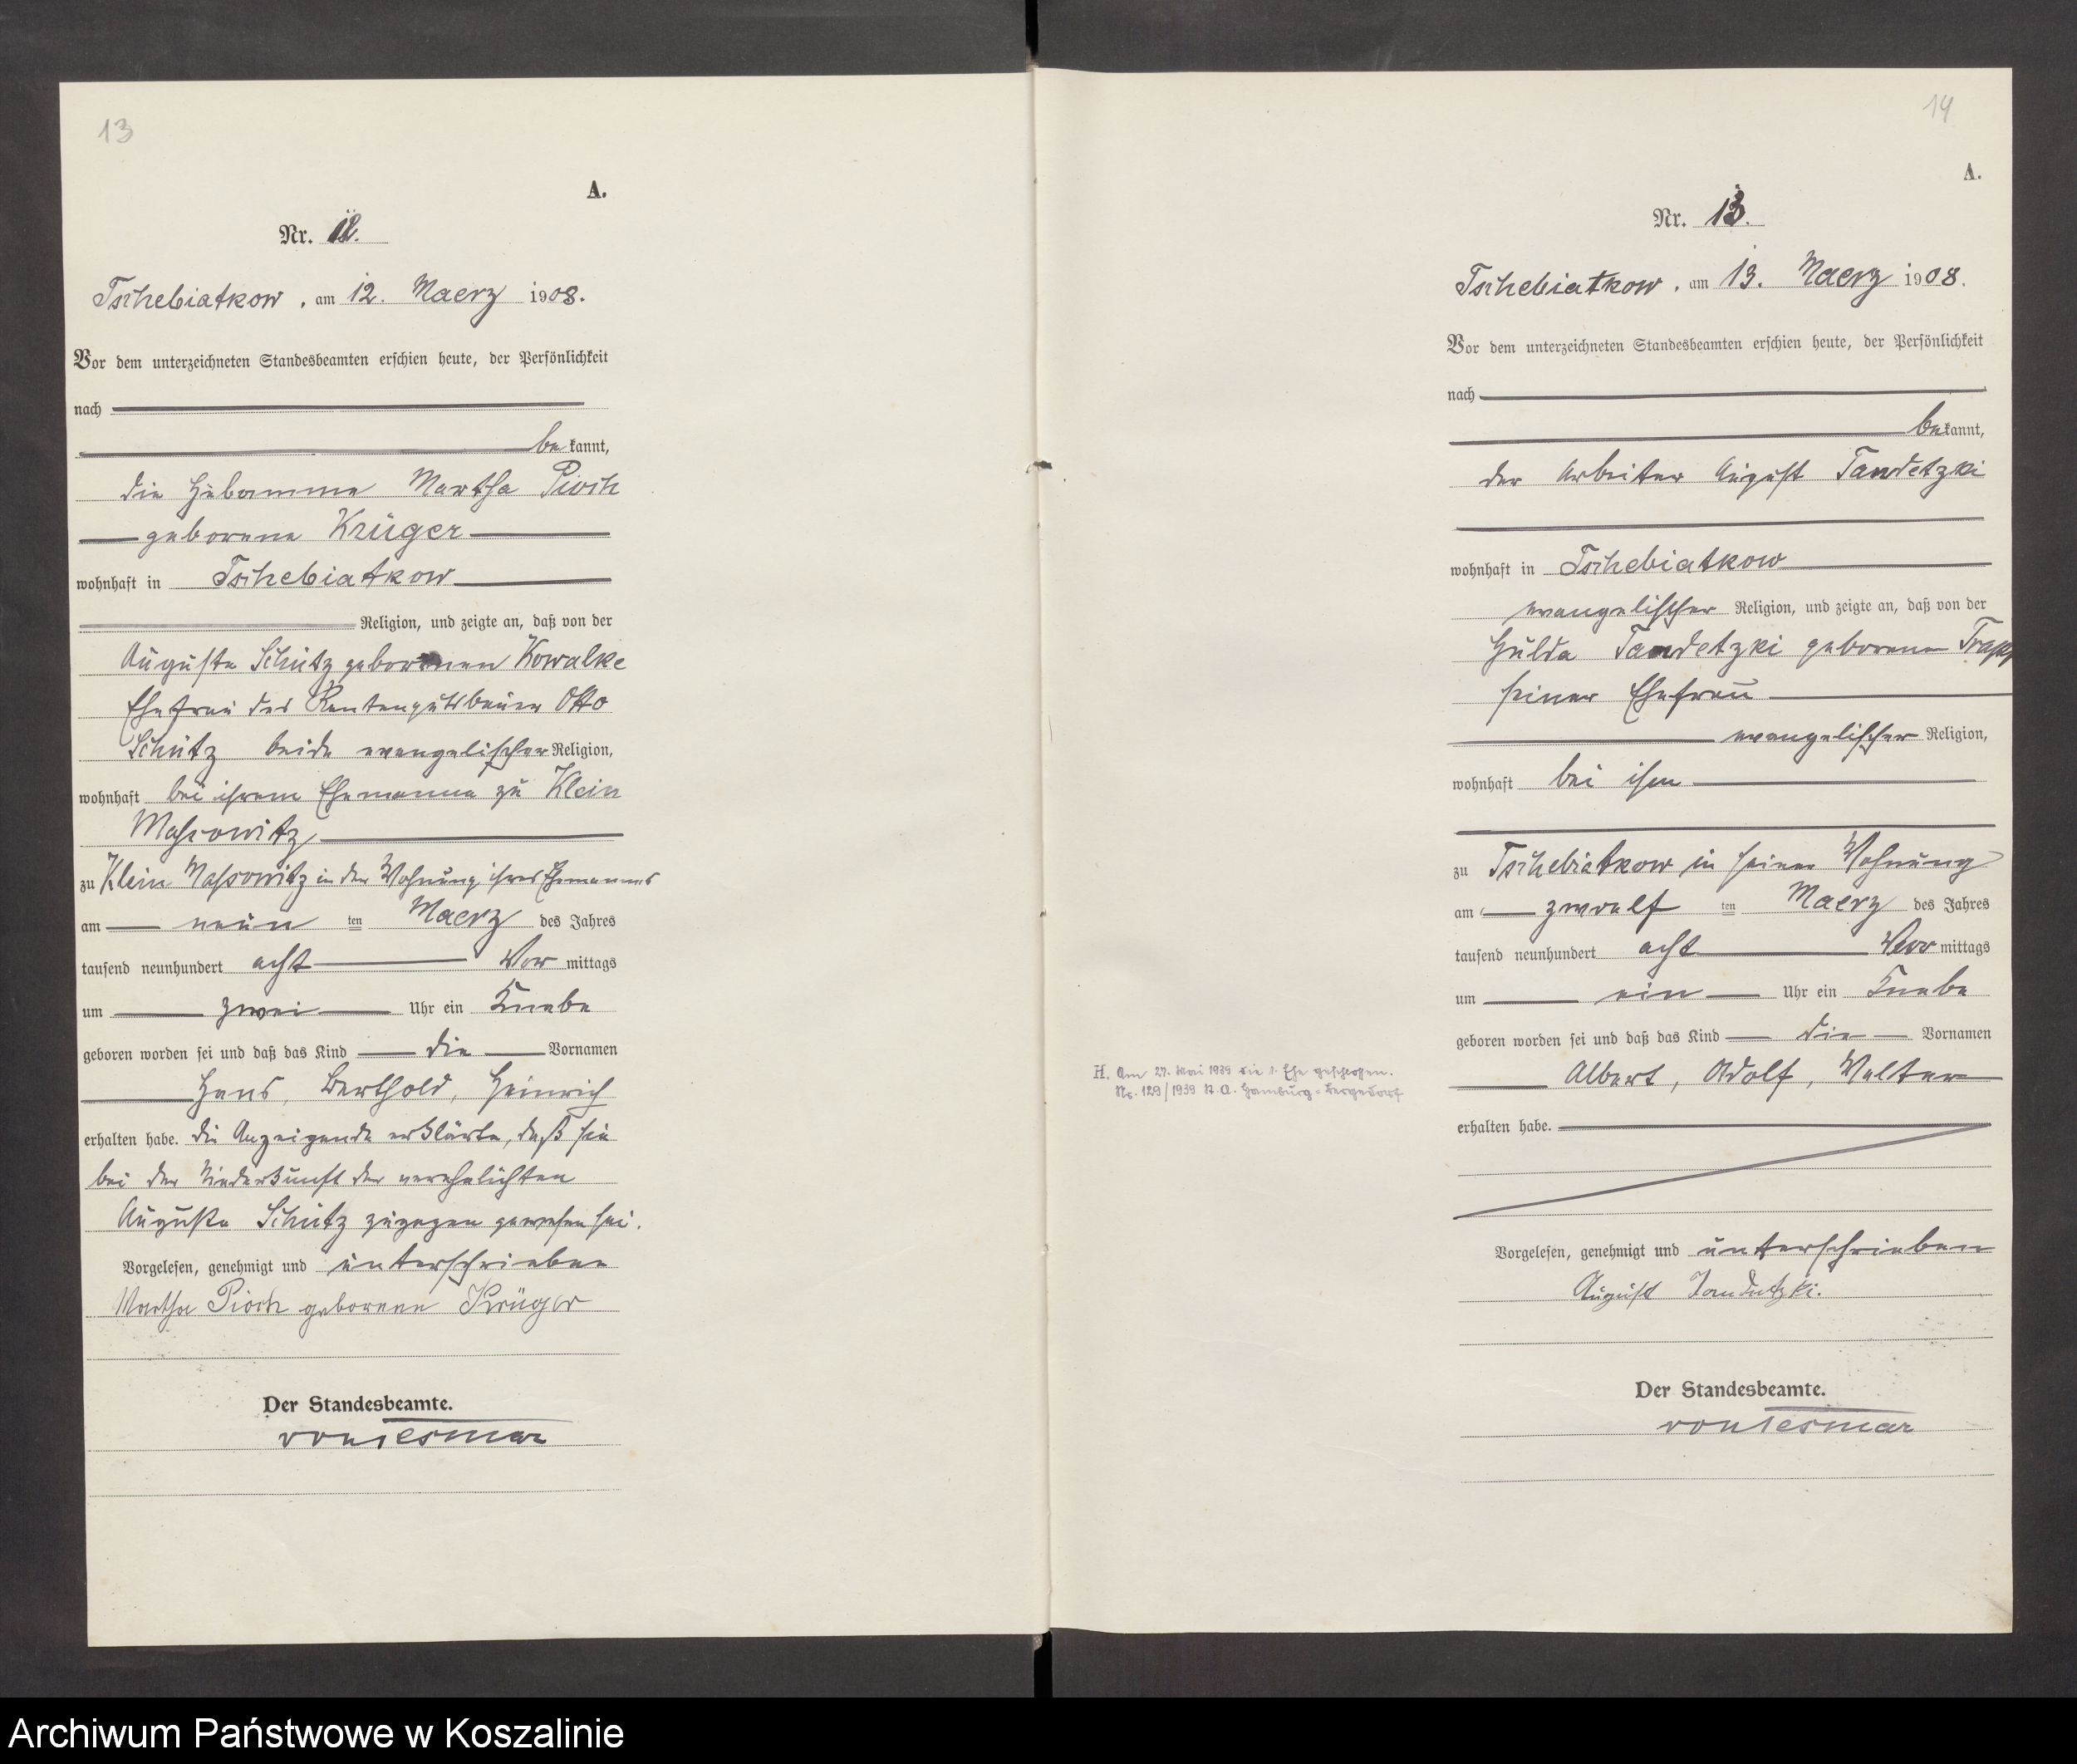 13
A.
Nr. 12.
Tschebiatkow, am 12. Maerz 1908.
Vor dem unterzeichneten Standesbeamten erschien heute, der Persönlichkeit
nach
bekannt,
die Hebamme Martha Pioch
geborene Krüger
wohnhaft in Tschebiatkow
Religion, und zeigte an, daß von der
Auguste Schütz geborenen Kowalke
Ehefrau des Rentengutsbauer Otto
Schütz beide evangelischer Religion,
wohnhaft bei ihrem Ehemanne zu Klein
Massowitz
zu Klein Massowitz in der Wohnung ihres Ehemannes
am neun ten Maerz des Jahres
tausend neunhundert acht Vor mittags
um zwei Uhr ein Knabe
geboren worden sei und daß das Kind die Vornamen
Hans, Berthold, Heinrich
erhalten habe. Die Anzeigende erklärte, daß sie
bei der Niederkunft der verehelichten
Auguste Schütz zugegen gewesen sei.
Vorgelesen, genehmigt und unterschrieben
Martha Pioch geborene Krüger
Der Standesbeamte.
von Tesmar
14
A.
Nr. 13.
Tschebiatkow, am 13. Maerz 1908.
Vor dem unterzeichneten Standesbeamten erschien heute, der Persönlichkeit
nach
bekannt,
der Arbeiter August Tandetzki
wohnhaft in Tschebiatkow
evangelischer Religion, und zeigte an, daß von der
Hulda Tandetzki geborene Trapp
seiner Ehefrau
evangelischer Religion,
wohnhaft bei ihm
zu Tschebiatkow in seiner Wohnung
am zwoelf ten Maerz des Jahres
tausend neunhundert acht Vor mittags
um ein Uhr ein Knabe
geboren worden sei und daß das Kind die Vornamen
Albert, Adolf, Walter
erhalten habe.
H. Am 27. Mai 1939 die 1. Ehe geschlossen.
Nr. 129/1939 St. A. Hamburg-Bergedorf
Vorgelesen, genehmigt und unterschrieben
August Tandetzki.
Der Standesbeamte.
von Tesmar
Archiwum Państwowe w Koszalinie